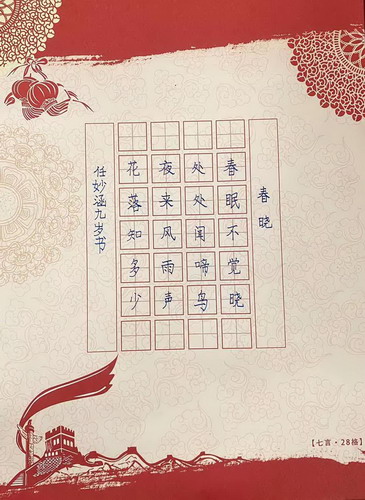 春晓
春眠不觉晓
处处闻啼鸟
夜来风雨声
花落知多少
任妙涵九岁书
【七言·28格】